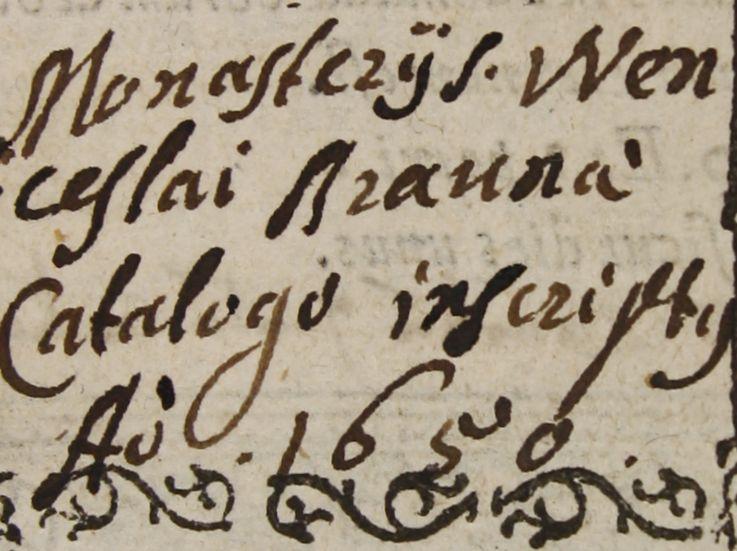 Monasterÿs. Wen
ceslai Braunà
Catalogo inscripty
Aò . 1650 .